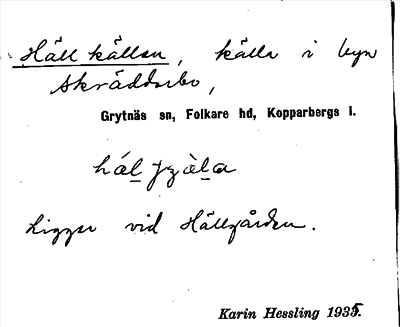 Häll källan, källa i byn
Skräddarbo,
Grytnäs sn, Folkare hd, Kopparbergs l.
Ligger vid Hällgården.
Karin Hessling 1935.